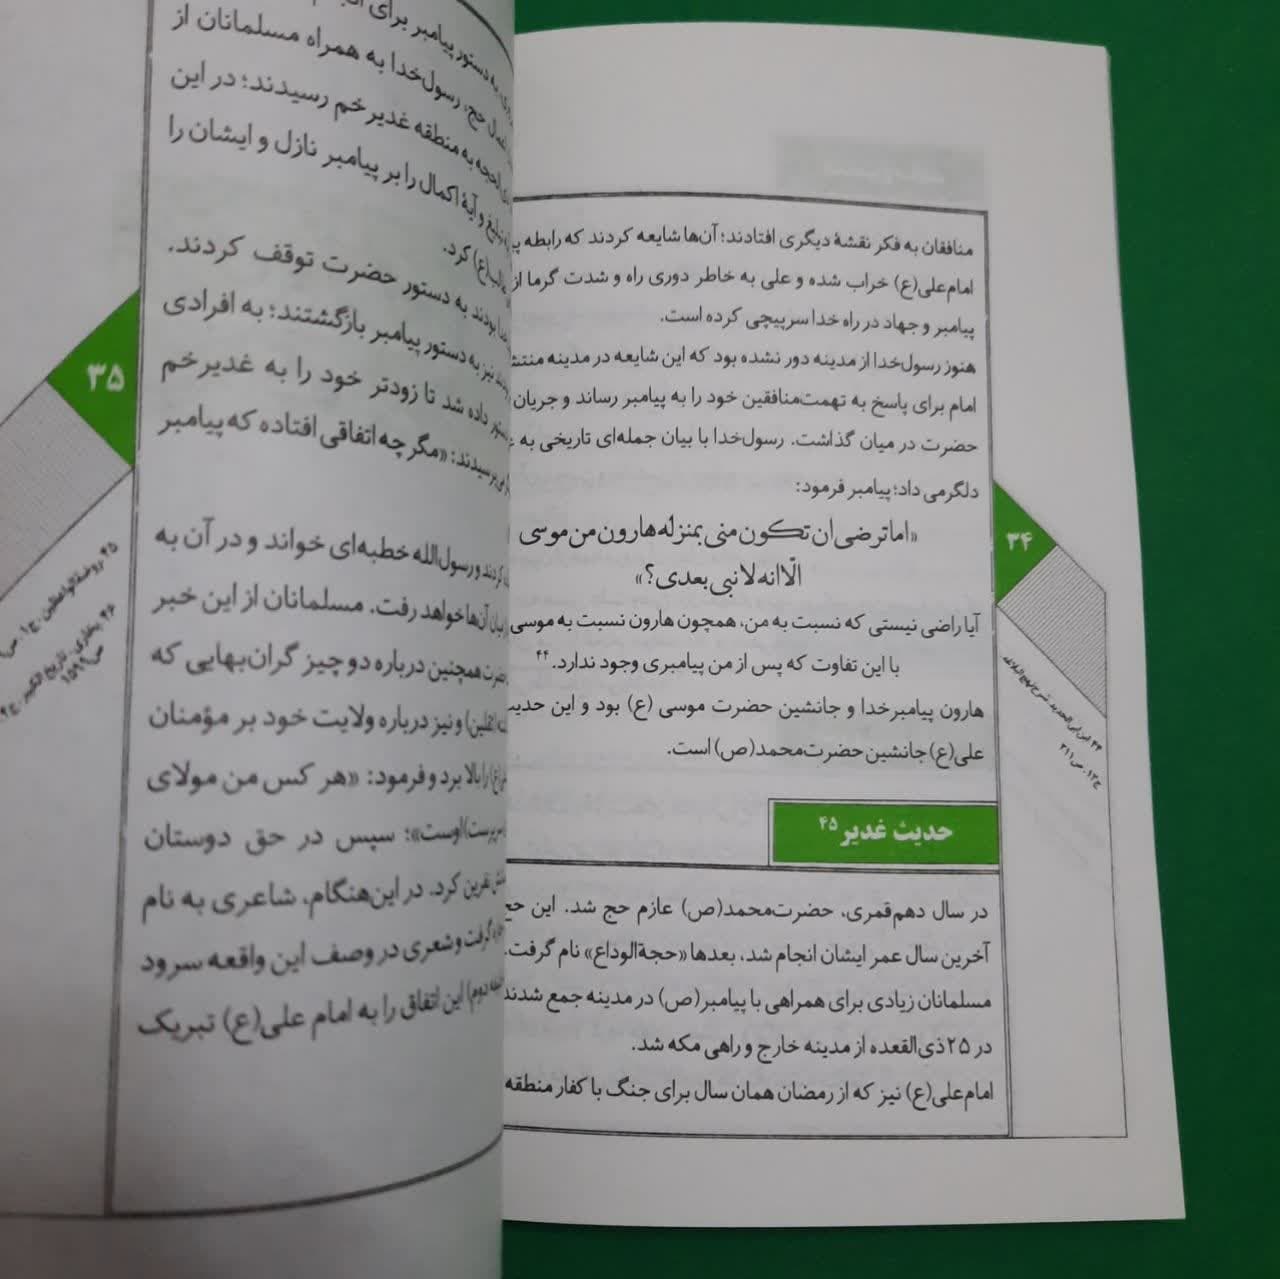 منافقان به فکر نقشهٔ دیگری افتادند؛ آن‌ها شایعه کردند که رابطه
امام‌علی(ع) خراب شده و علی به خاطر دوری راه و شدت گرما از
پیامبر و جهاد در راه خدا سرپیچی کرده است.
هنوز رسول‌خدا از مدینه دور نشده بود که این شایعه در مدینه
امام برای پاسخ به تهمت‌منافقین خود را به پیامبر رساند و جریان
حضرت در میان گذاشت. رسول‌خدا با بیان جمله‌ای تاریخی به
دلگرمی داد؛ پیامبر فرمود:
«اما ترضی ان تکون منی بمنزله هارون من موسی
الّا انه لا نبی بعدی؟»
آیا راضی نیستی که نسبت به من، همچون هارون نسبت به موسی
با این تفاوت که پس از من پیامبری وجود ندارد.۴۴
هارون پیامبرخدا و جانشین حضرت موسی (ع) بود و این
علی(ع) جانشین حضرت‌محمد(ص) است.
حدیث غدیر ۴۵
در سال دهم‌قمری، حضرت‌محمد(ص) عازم حج شد. این حج
آخرین سال عمر ایشان انجام شد، بعدها «حجةالوداع» نام گرفت.
مسلمانان زیادی برای همراهی با پیامبر(ص) در مدینه جمع شدند
در ۲۵ذی‌القعده از مدینه خارج و راهی مکه شد.
امام‌علی(ع) نیز که از رمضان همان سال برای جنگ با کفار منطقه
۳۴
۴۴. ابن ابی‌الحدید، شرح نهج‌البلاغه
ج۱۳، ص۲۱۱
به دستور پیامبر برای
حج، رسول‌خدا به همراه مسلمانان از
به منطقه غدیرخم رسیدند؛ در این
و آیهٔ اکمال را بر پیامبر نازل و ایشان را
کرد.
بودند به دستور حضرت توقف کردند.
نیز به دستور پیامبر بازگشتند؛ به افرادی
داده شد تا زودتر خود را به غدیرخم
پرسیدند: «مگر چه اتفاقی افتاده که پیامبر
و رسول‌الله خطبه‌ای خواند و در آن به
آن‌ها خواهد رفت. مسلمانان از این خبر
همچنین درباره دو چیز گران‌بهایی که
و نیز درباره ولایت خود بر مؤمنان
را بالا برد و فرمود: «هر کس من مولای
اوست»؛ سپس در حق دوستان
نفرین کرد. در این‌هنگام، شاعری به نام
گرفت و شعری در وصف این واقعه سرود
دوم) این اتفاق را به امام علی(ع) تبریک
۳۵
۴۵. روضةالواعظین، ج۱، ص
۴۶. بخاری، تاریخ الکبیر، ج۴
ص۱۵۹۱